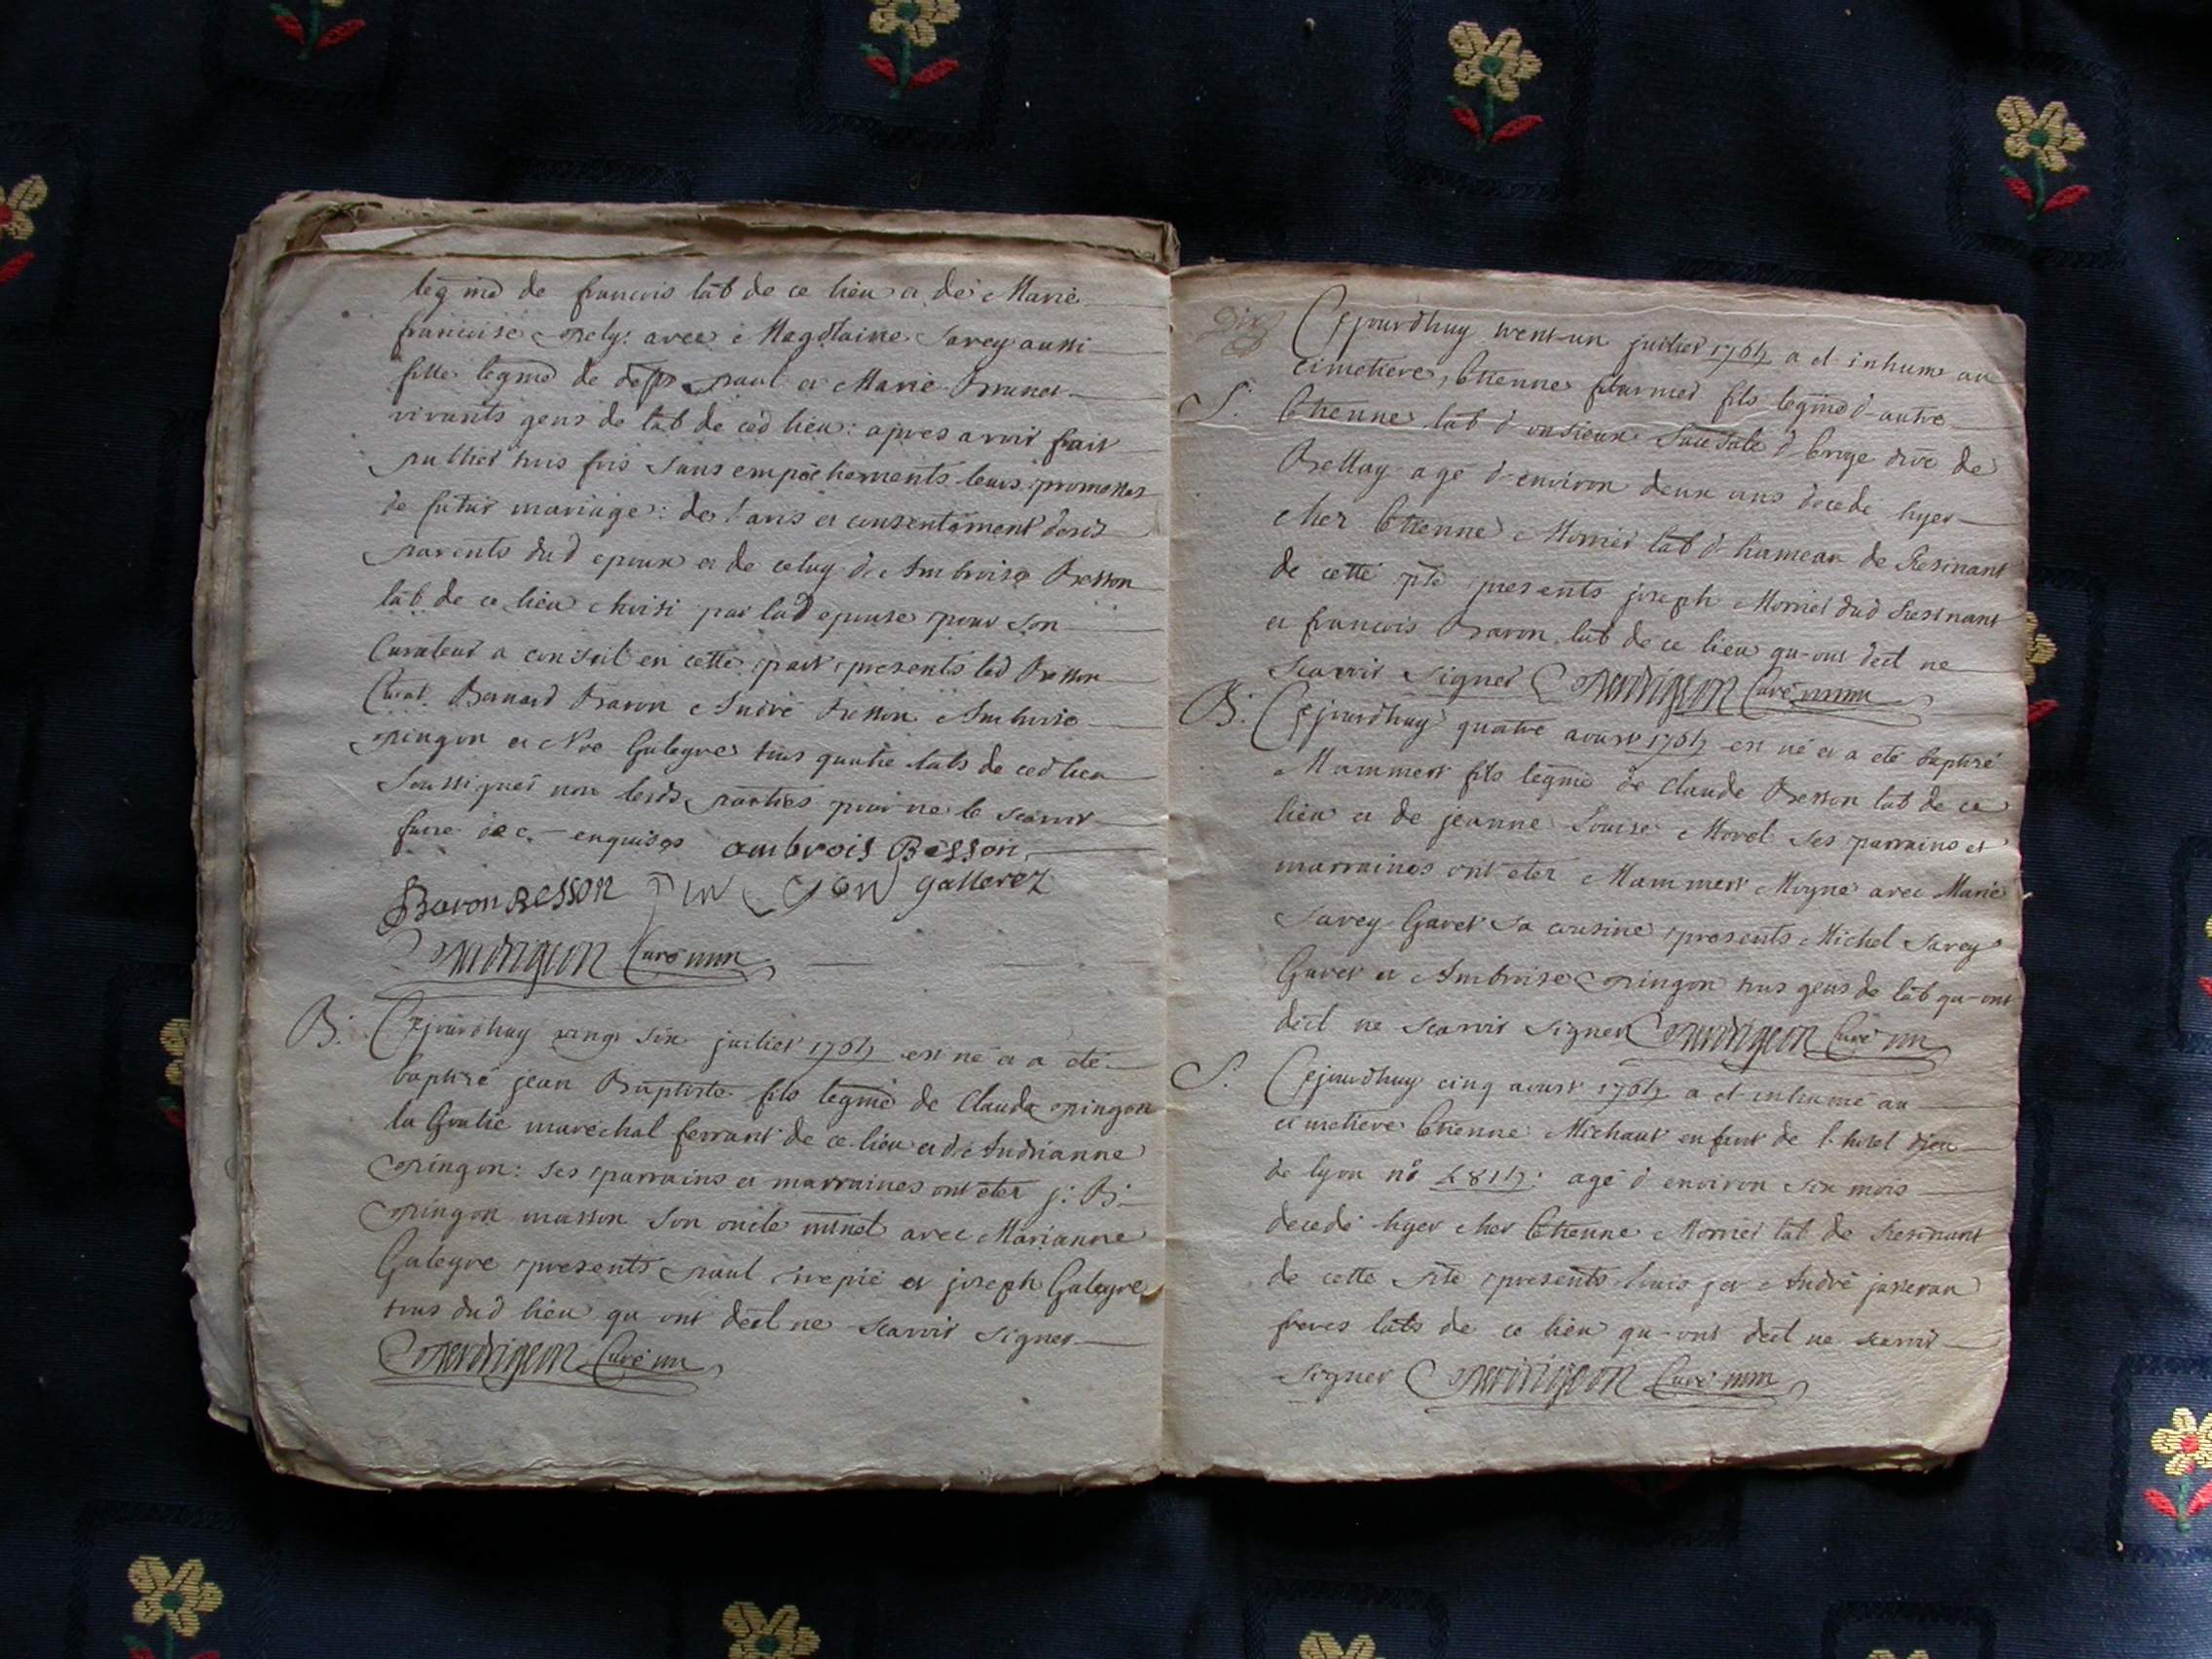 legme de francois lab de ce lieu et de Marie
francoise avec Magdlaine Savey aussi
fille legme de paul et Marie Brunet
vivants gens de lab de ced lieu : apres avoir fait
publier trois fois sans empechements leurs promesses
de futur mariage : de l'avis et consentement desd
parents dud epoux et de celuy de Ambroise Besson
lab de ce lieu choisi par lad epouse pour son
Curateur a conseil en cette part presents led Besson
Curat. Bernard Baron André Besson Ambroise
pingon et Galeyre tous quatre labs de ced lieu
soussignes non lesd parties pour ne le scavoir
faire de c. enquises ambrois Besson
Baron Besson pingon gallerez
Curé
B. Cejourdhuy vingt six juillet 1764 est né et a eté
baptisé jean Baptiste fils legme de Claude pingon
la marechal ferrant de ce lieu et de Andrianne
pingon : ses parrains et marraines ont eter j : B :
pingon masson son oncle avec Marianne
Galeyre presents paul et joseph Galeyre
tous dud lieu qu ont decl ne scavoir signer
Curé
Dix
Cejourdhuy trent-un juillet 1764 a et inhumé au
cimetiere, Etienne fils legme d-autre
S. Etienne lab d de
age d-environ deux ans decedé hyer
chez Etienne Mornier lab d hameau de Resinant
de cette psse presents joseph Mornier dud Resinant
et francois Baron lab de ce lieu qu-ont decl ne
scavoir signer Curé
B. Cejourdhuy quatre aoust 1764 est né et a eté baptisé
Mammert fils legme de Claude Besson lab de ce
lieu et de jeanne Louise Morel ses parrains et
marraines ont eter Mammert Moyne avec Marie
Savey Gavet sa cousine presents Michel Savey
Gavet et Ambroise pingon tous gens de lab qu-ont
decl ne scavoir signer Curé
S. Cejourdhuy cinq aoust 1764 a et inhumé au
cimetiere Etienne Michaut enfant de l-hotel dieu
de lyon no agé d environ six mois
decedé hyer chez Etienne Mornier lab de Resinant
de cette psse presents louis et André jasseran
freres labs de ce lieu qu-ont decl ne scavoir
signer Curé